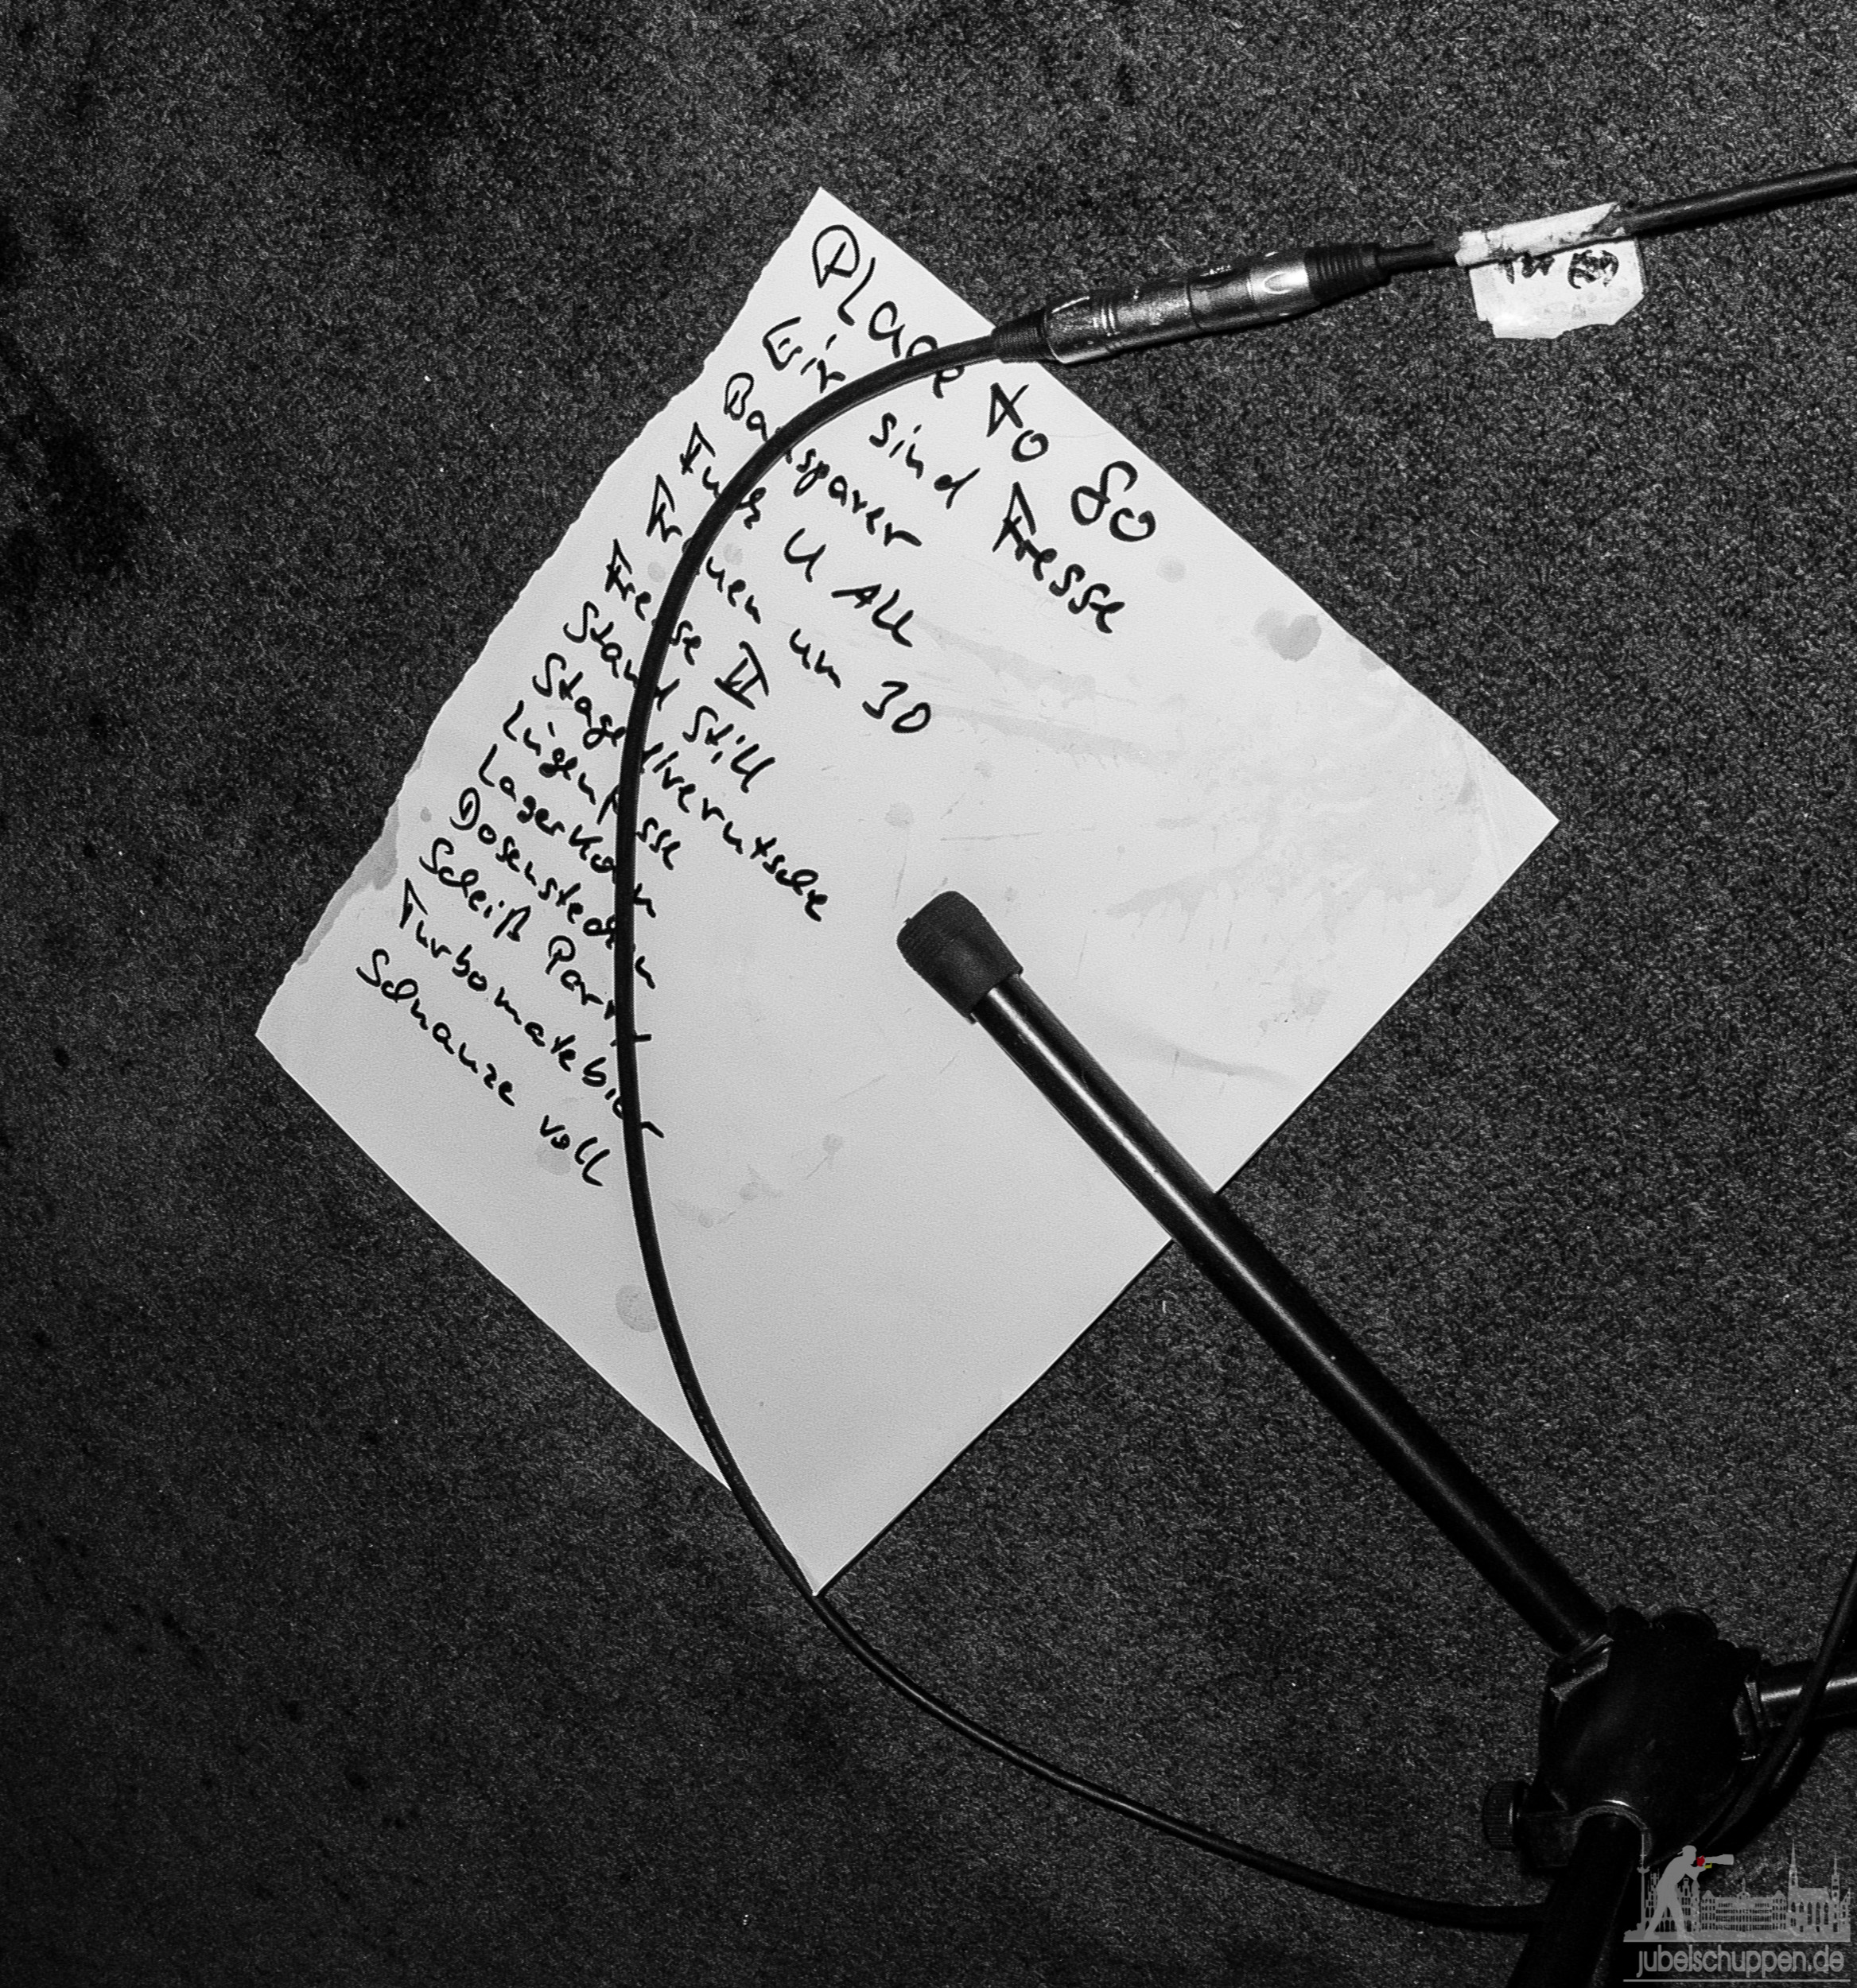 Plage 40 80
Wir sind Fresse
Bausparer
Fuck U All
Frauen um 30
Fresse II
Stand Still
Stagediverutsche
Lügenfresse
Lagerkorn
Dosenstechen
Scheiß Party
Turbomatebier
Schnauze voll
jubelschuppen.de